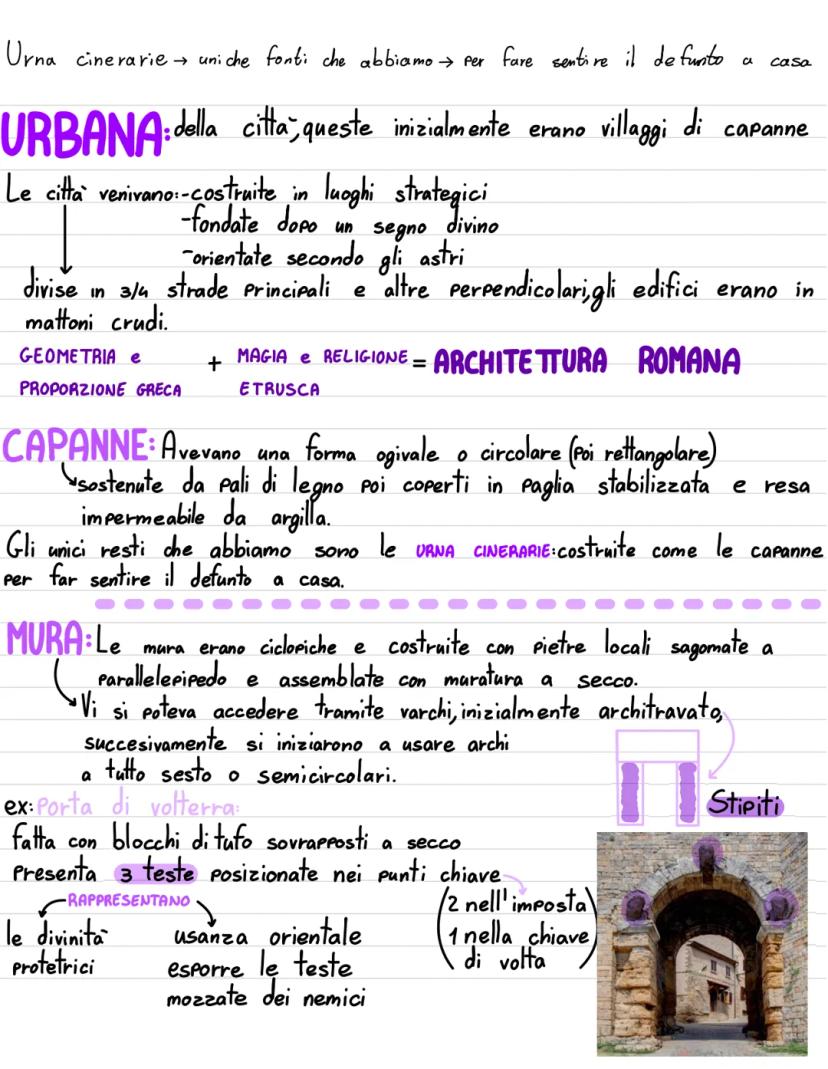 Urna cinerarie → uniche fonti che abbiamo → per fare sentire il defunto a casa
URBANA: della città, queste inizialmente erano villaggi di capanne
Le città venivano:-costruite in luoghi strategici
-fondate dopo un segno divino
-orientate secondo gli astri
divise in 3/4 strade principali e altre perpendicolari, gli edifici erano in
mattoni crudi.
GEOMETRIA e + MAGIA e RELIGIONE = ARCHITETTURA ROMANA
PROPORZIONE GRECA ETRUSCA
CAPANNE: Avevano una forma ogivale o circolare (poi rettangolare)
sostenute da pali di legno poi coperti in paglia stabilizzata e resa
impermeabile da argilla.
Gli unici resti che abbiamo sono le URNA CINERARIE: costruite come le capanne
per far sentire il defunto a casa.
MURA: Le mura erano ciclopiche e costruite con pietre locali sagomate a
parallelepipedo e assemblate con muratura a secco.
Vi si poteva accedere tramite varchi, inizialmente architravato,
succesivamente si iniziarono a usare archi
a tutto sesto o semicircolari.
Stipiti
ex: Porta di volterra:
fatta con blocchi di tufo sovrapposti a secco
Presenta 3 teste posizionate nei punti chiave
(2 nell'imposta
1 nella chiave
di volta)
RAPPRESENTANO
le divinità
protetrici
usanza orientale
esporre le teste
mozzate dei nemici